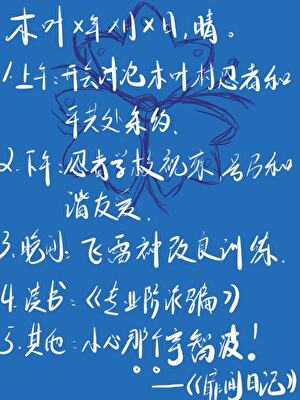 木叶×年×月×日,晴。
1.上午:开会讨论木叶村忍者和
平共处条约.
2.下午:忍者学校视察,号召和
谐友爱.
3.晚间:飞雷神改良训练.
4.读书:《专业防泉骗》
5.其他:小心那个宇智波!
——《扉间日记》